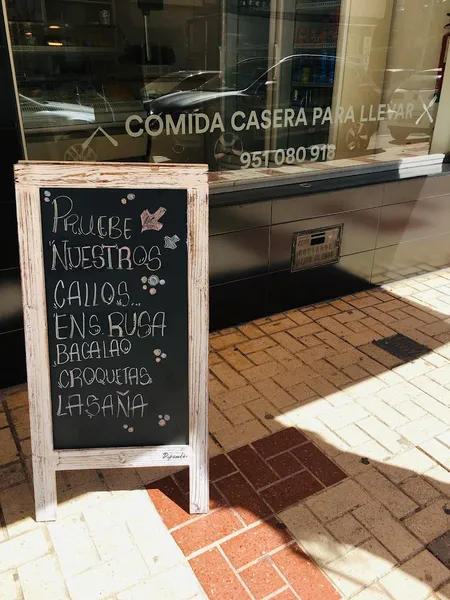 COMIDA CASERA PARA LLEVAR
951 080 918
PRUEBE
NUESTROS
CALLOS...
ENS. RUSA
BACALAO
CROQUETAS
LASAÑA